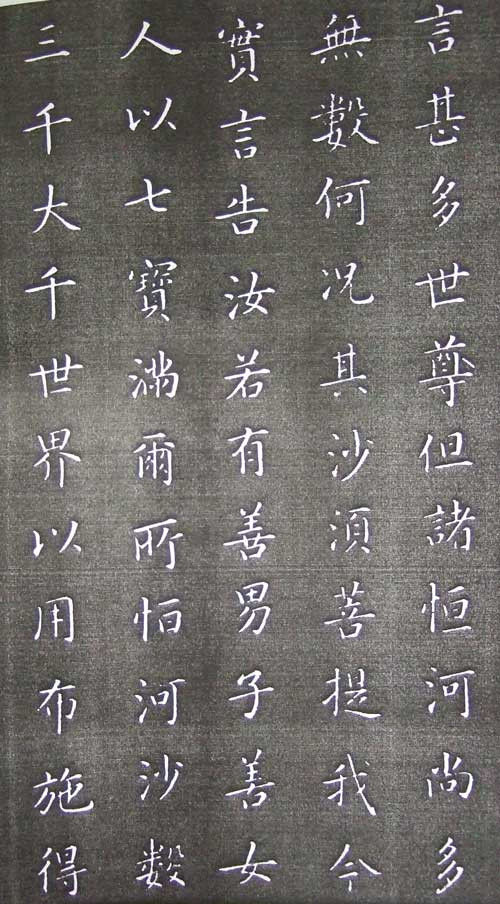 言甚多世尊但諸恒河尚多
無數何況其沙須菩提我今
實言告汝若有善男子善女
人以七寶滿爾所恒河沙數
三千大千世界以用布施得